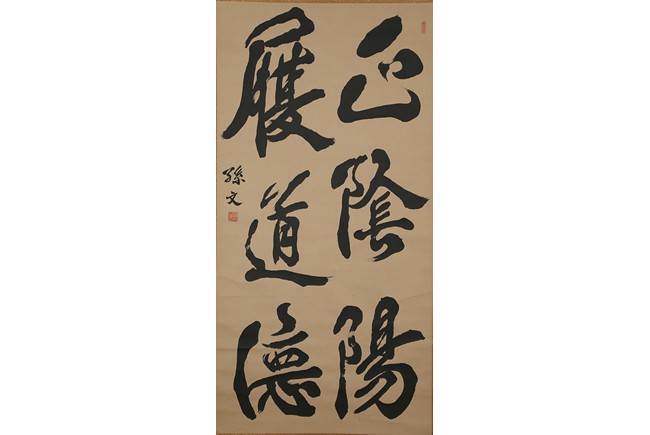 正陰陽
履道德
孫文